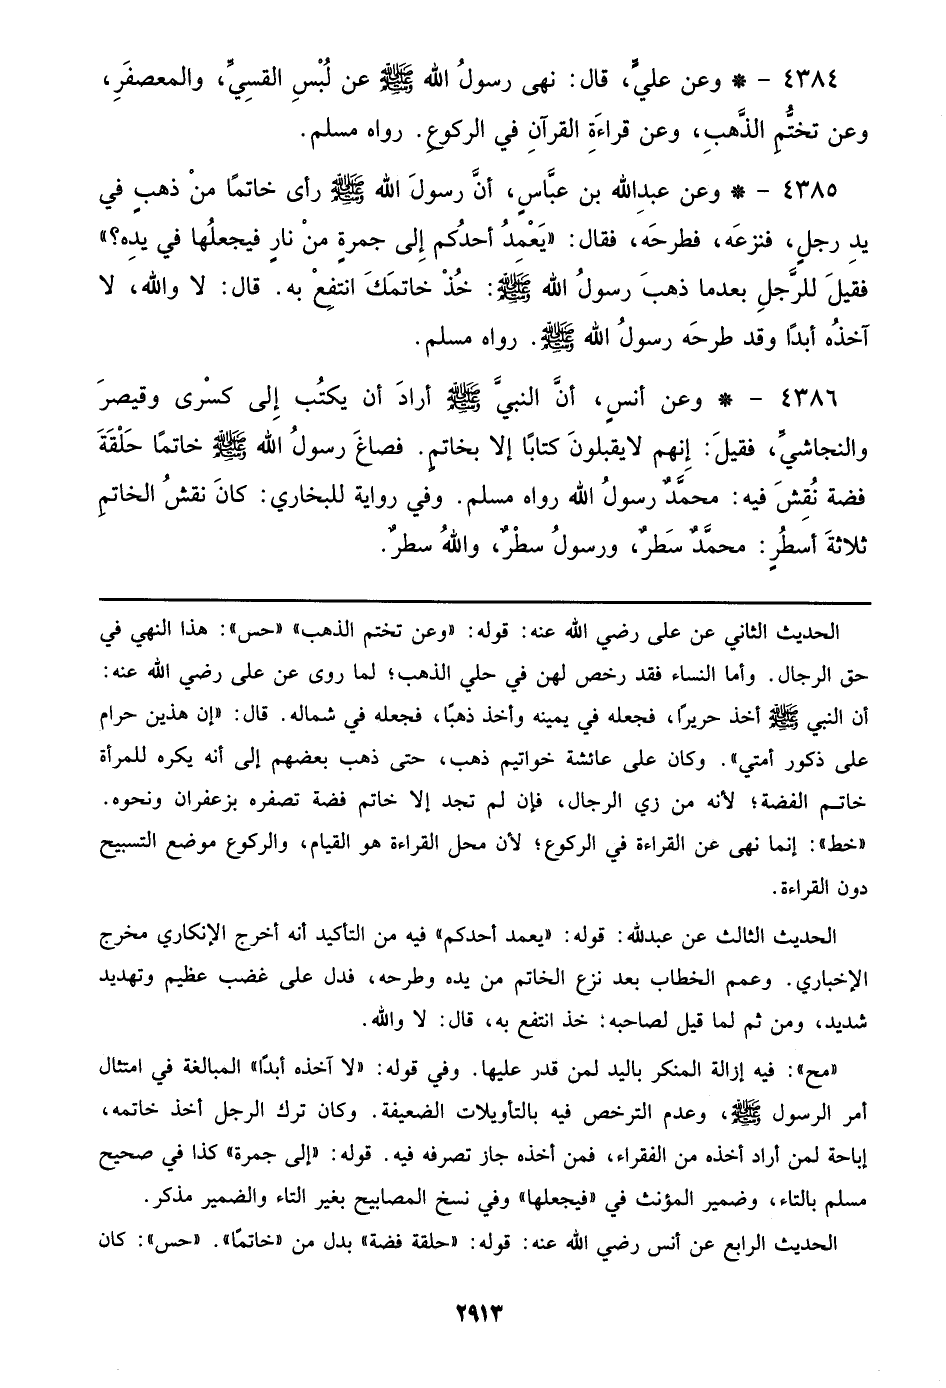 ٤٣٨٤ – * وعن عليٍّ، قال: نهى رسولُ الله ﷺ عن لُبْسِ القسيِّ، والمعصفَرِ،
وعن تختُّمِ الذَّهبِ، وعن قراءَةِ القرآنِ في الركوعِ. رواه مسلم.
٤٣٨٥ – * وعن عبدِالله بن عبَّاسٍ، أنَّ رسولَ الله ﷺ رأى خاتمًا منْ ذهبٍ في
يدِ رجلٍ، فنزعَه، فطرحَه، فقال: «يَعْمِدُ أحدُكم إلى جمرةٍ منْ نارٍ فيجعلُها في يدِه؟»
فقيلَ للرَّجلِ بعدما ذهبَ رسولُ الله ﷺ: خُذْ خاتمَكَ انتفِعْ به. قال: لا والله، لا
آخذُه أبدًا وقد طرحَه رسولُ الله ﷺ. رواه مسلم.
٤٣٨٦ – * وعن أنسٍ، أنَّ النبيَّ ﷺ أرادَ أن يكتُب إلى كسْرى وقيصرَ
والنجاشيِّ، فقيلَ: إنهم لايقبلونَ كتابًا إلا بخاتمٍ. فصاغَ رسولُ الله ﷺ خاتمًا حَلْقَةَ
فضة نُقِشَ فيه: محمَّدٌ رسولُ الله رواه مسلم. وفي رواية للبخاري: كانَ نقشُ الخاتمِ
ثلاثةَ أسطُرٍ: محمَّدٌ سَطرٌ، ورسولُ سطْرٌ، واللهُ سطرٌ.
الحديث الثاني عن على رضي الله عنه: قوله: «وعن تختم الذهب» «حس»: هذا النهي في
حق الرجال. وأما النساء فقد رخص لهن في حلي الذهب؛ لما روى عن على رضي الله عنه:
أن النبي ﷺ أخذ حريرًا، فجعله في يمينه وأخذ ذهبًا، فجعله في شماله. قال: «إن هذين حرام
على ذكور أمتي». وكان على عائشة خواتيم ذهب، حتى ذهب بعضهم إلى أنه يكره للمرأة
خاتـم الفضة؛ لأنه من زي الرجال، فإن لم تجد إلا خاتم فضة تصفره بزعفران ونحوه.
«خط»: إنما نهى عن القراءة في الركوع؛ لأن محل القراءة هو القيام، والركوع موضع التسبيح
دون القراءة.
الحديث الثالث عن عبدلله: قوله: «يعمد أحدكم» فيه من التأكيد أنه أخرج الإنكاري مخرج
الإخباري. وعمم الخطاب بعد نزع الخاتم من يده وطرحه، فدل على غضب عظيم وتهديد
شديد، ومن ثم لما قيل لصاحبه: خذ انتفع به، قال: لا والله.
«مح»: فيه إزالة المنكر باليد لمن قدر عليها. وفي قوله: «لا آخذه أبدًا» المبالغة في امتثال
أمر الرسول ﷺ، وعدم الترخص فيه بالتأويلات الضعيفة. وكان ترك الرجل أخذ خاتمه،
إباحة لمن أراد أخذه من الفقراء، فمن أخذه جاز تصرفه فيه. قوله: «إلى جمرة» كذا في صحيح
مسلم بالتاء، وضمير المؤنث في «فيجعلها» وفي نسخ المصابيح بغير التاء والضمير مذكر.
الحديث الرابع عن أنس رضي الله عنه: قوله: «حلقة فضة» بدل من «خاتمًا». «حس»: كان
٢٩١٣